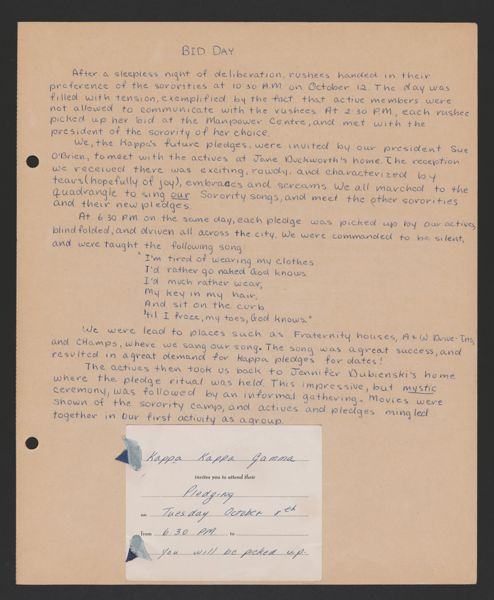 BID DAY
After a sleepless night of deliberation, rushees handed in their
preference of the sororities at 10:30 A.M. on October 12. The day was
filled with tension, exemplified by the fact that active members were
not allowed to communicate with the rushees. At 2:30 P.M., each rushee
picked up her bid at the Manpower Centre, and met with the
president of the sorority of her choice.
We, the Kappa's future pledges, were invited by our president Sue
O'Brien, to meet with the actives at Jane Duckworth's home. The reception
we received there was exciting, rowdy, and characterized by
tears (hopefully of joy), embraces and screams. We all marched to the
quadrangle to sing our Sorority songs, and meet the other sororities
and their new pledges.
At 6:30 P.M. on the same day, each pledge was picked up by our actives,
blindfolded, and driven all across the city. We were commanded to be silent,
and were taught the following song:
"I'm tired of wearing my clothes
I'd rather go naked God knows
I'd much rather wear,
My key in my hair,
And sit on the curb
'til I froze, my toes, God knows."
We were lead to places such as Fraternity houses, A & W Drive-Ins,
and Champs, where we sang our song. The song was a great success, and
resulted in a great demand for Kappa pledges for dates!
The actives then took us back to Jennifer Dubienski's home
where the pledge ritual was held. This impressive, but mystic
ceremony, was followed by an informal gathering. Movies were
shown of the sorority camp, and actives and pledges mingled
together in our first activity as a group.
Kappa Kappa Gamma
invites you to attend their
Pledging
on Tuesday October 8th
from 6:30 PM to
You will be picked up.